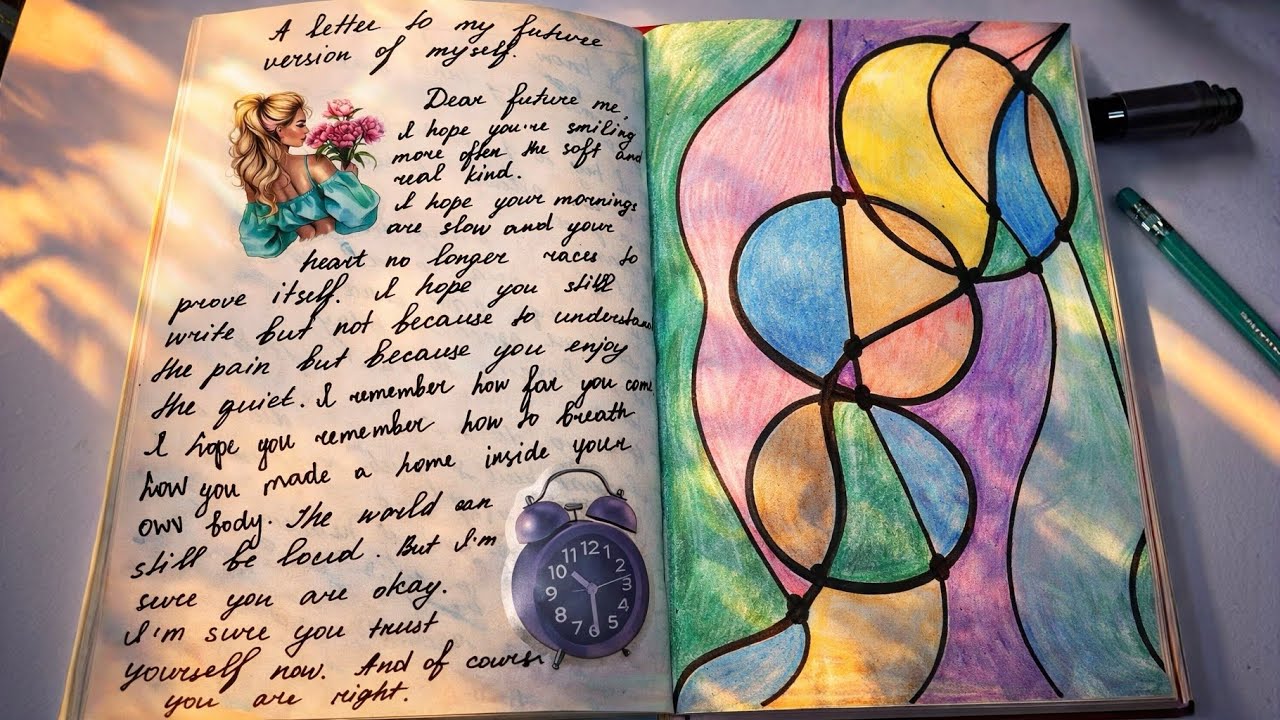 A letter to my future
version of myself.
Dear future me,
I hope you're smiling
more often the soft and
real kind.
I hope your mornings
are slow and your
heart no longer races to
prove itself. I hope you still
write but not because to understand
the pain but because you enjoy
the quiet. I remember how far you come
I hope you remember how to breath
how you made a home inside your
own body. The world can
still be loud. But I'm
sure you are okay.
I'm sure you trust
yourself now. And of course
you are right.
11 12 1
10 2
9 3
8 4
7 6 5